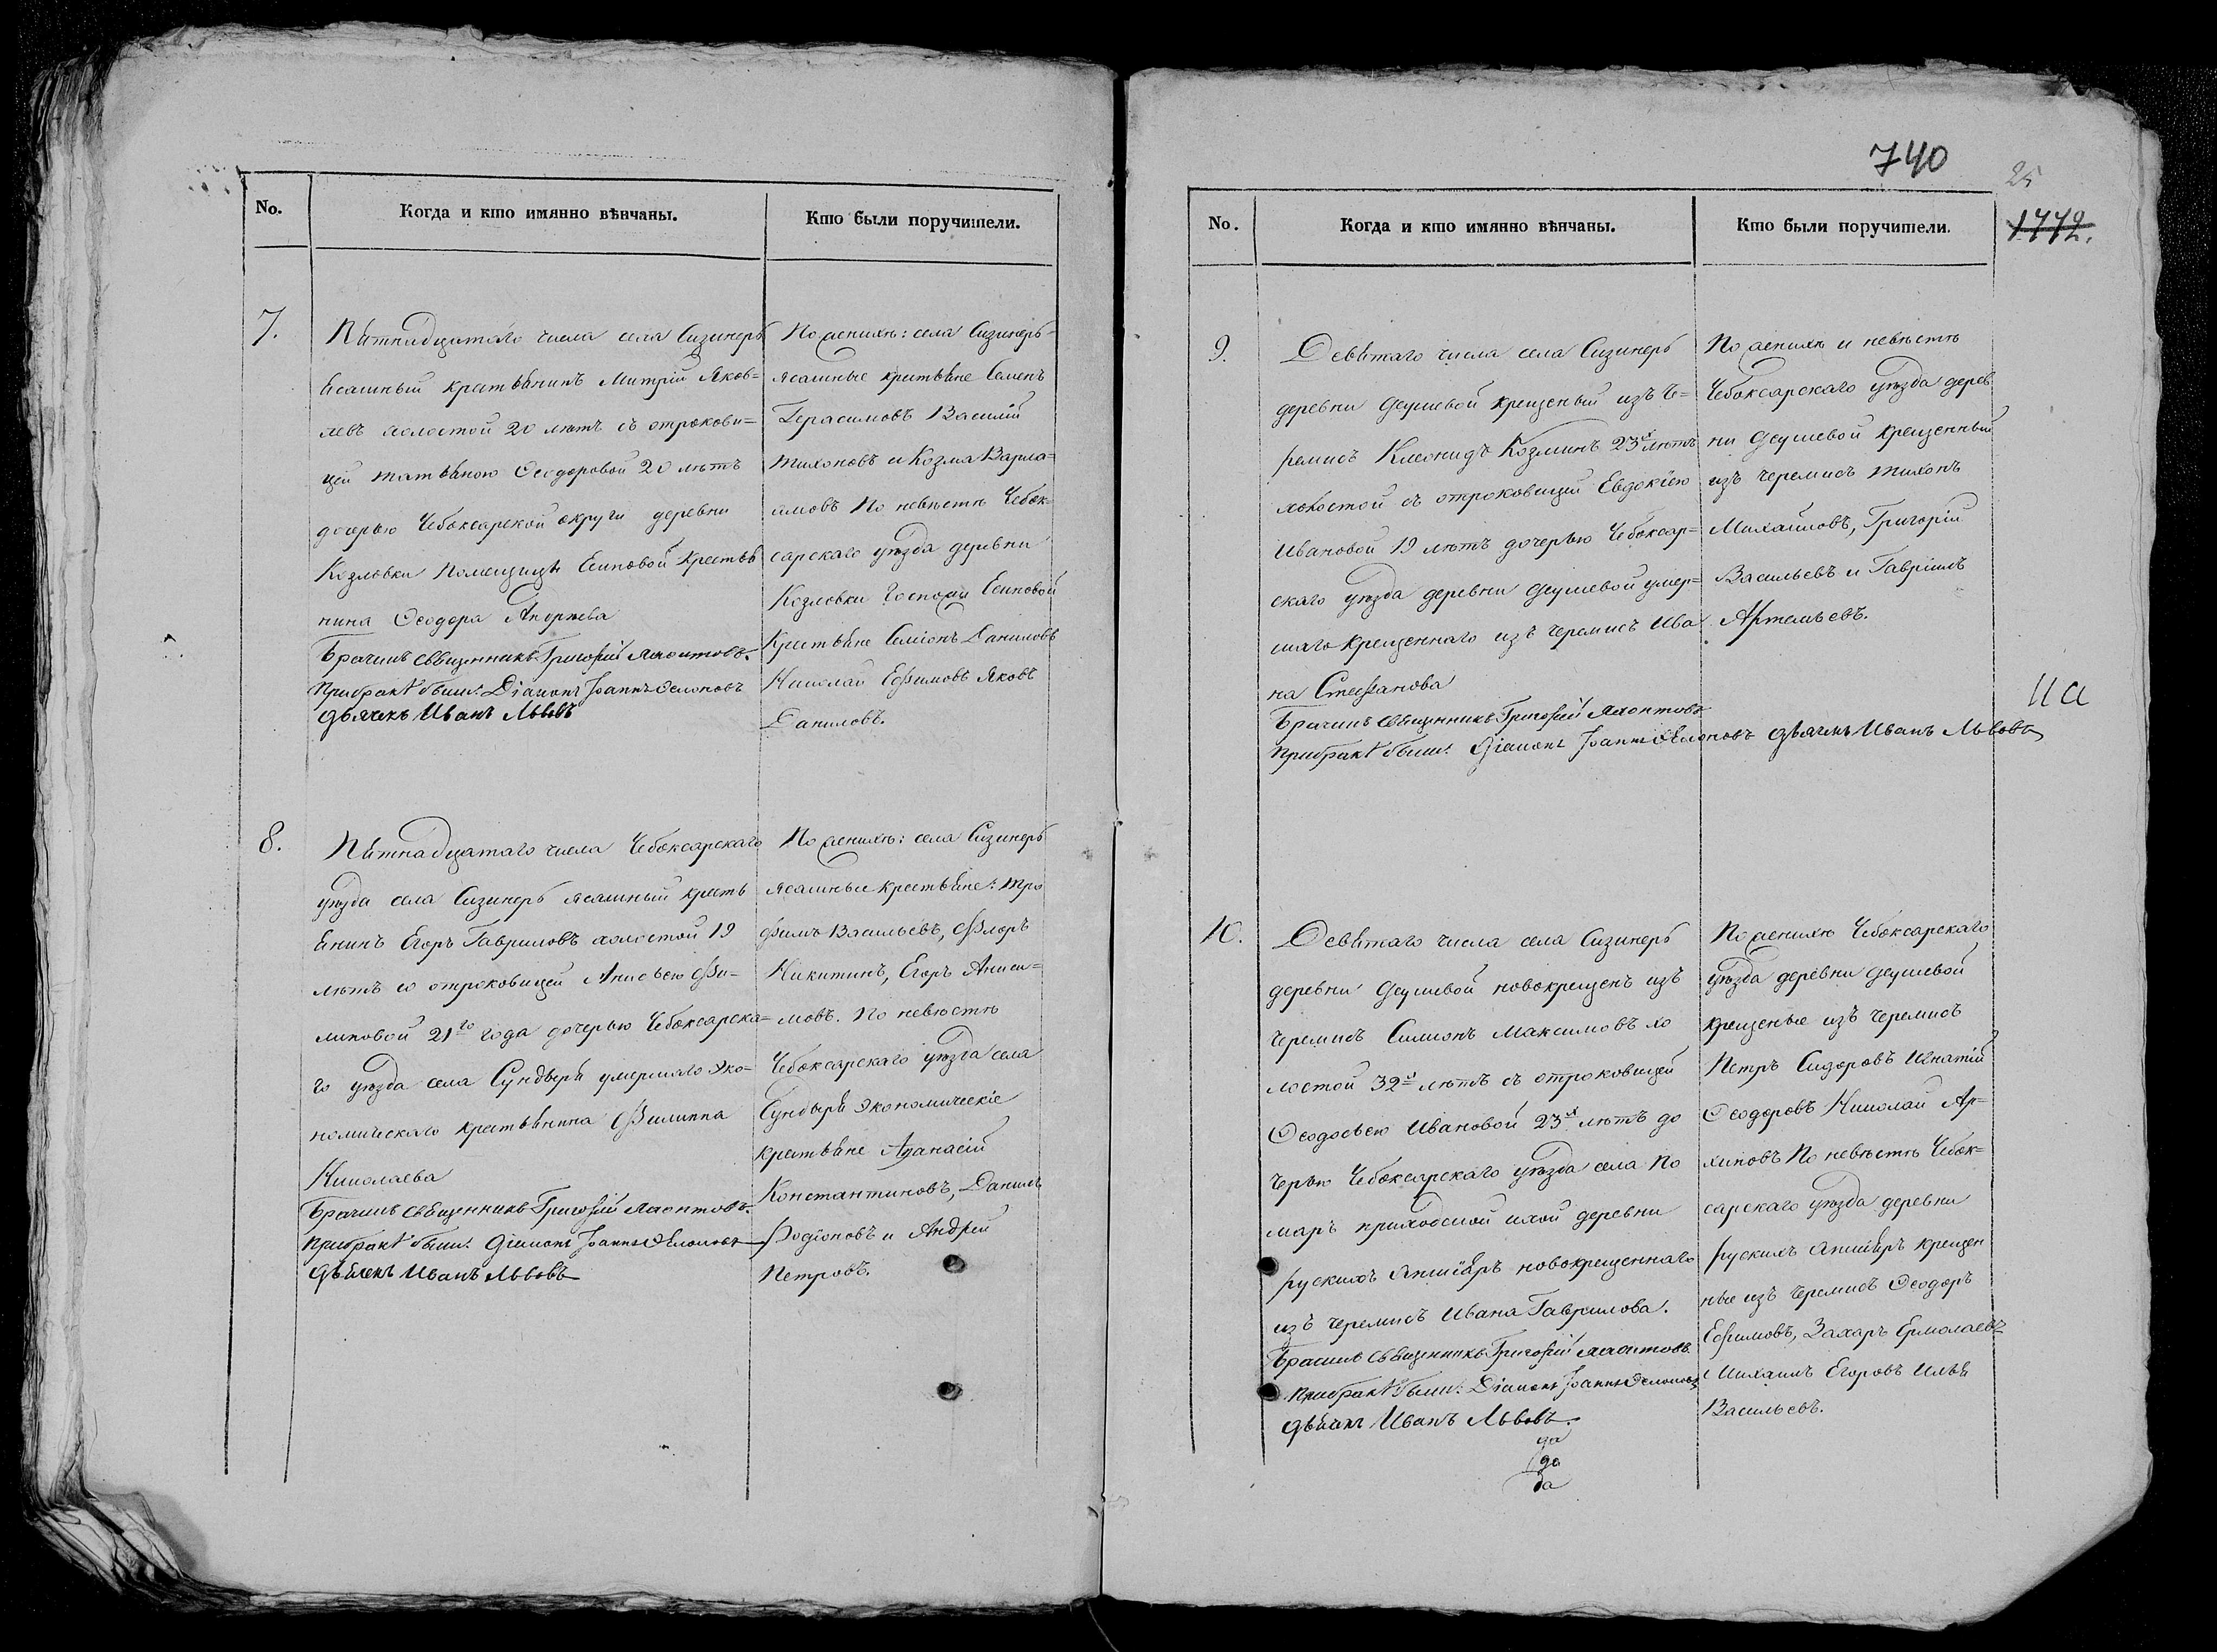 No.
Когда и кто имянно вѣнчаны.
Кто были поручители.
7.
Пятнадцатаго числа села Сизинеръ
ясашный крестьянинъ Митрій Яков=
левъ холостой 20 лѣтъ съ отрокови=
цей Татьяною Ѳеодоровой 20 лѣтъ
дочерью Чебоксарской округи деревни
Козловки помещицы Есиповой крестья
нина Ѳеодора
Брачилъ священникъ Григорій
При бракѣ были: Діаконъ Іоаннъ
дьячекъ Иванъ Львовъ
По женихѣ: села Сизинеръ=
ясашные крестьяне Семенъ
Герасимовъ Василій
Тихоновъ и Козма Варла=
амовъ По невѣстѣ Чебок=
сарскаго уѣзда деревни
Козловки Госпожи Есиповой
Крестьяне Семіонъ Даниловъ
Николай Ефимовъ Яковъ
Даниловъ.
8.
Пятнадцатаго числа Чебоксарскаго
уѣзда села Сизинеръ ясашный кресть
янинъ Егоръ Гавриловъ холостой 19
лѣтъ со отроковицей Анисьею Фи=
липовой 21го года дочерью Чебоксарска=
го уѣзда села Сундыря умершаго эко=
номическаго крестьянина Филиппа
Николаева
Брачилъ священникъ Григорій
При бракѣ были: Діаконъ Іоаннъ
дьячекъ Иванъ Львовъ
По женихѣ: села Сизинеръ
ясашные крестьяне: Тро
фимъ Васильевъ, Флоръ
Никитинъ, Егоръ Аниси=
мовъ. По невѣстѣ
Чебоксарскаго уѣзда села
Сундыря экономическіе
крестьяне Аѳанасій
Константиновъ, Данилъ
Родіоновъ и Андрей
Петровъ.
740
25
1772.
No.
Когда и кто имянно вѣнчаны.
Кто были поручители.
9.
Девятаго числа села Сизинеръ
деревни Деушевой крещеный изъ че=
ремисъ Клеонидъ Козминъ 23х лѣтъ
холостой съ отроковицей Евдокіею
Ивановой 19 лѣтъ дочерью Чебоксар=
скаго уѣзда деревни Деушевой умер=
шаго крещеннаго изъ черемисъ Ива
на Стефанова
Брачилъ священникъ Григорій
При бракѣ были: Діаконъ Іоаннъ дьячекъ Иванъ Львовъ
По женихѣ и невѣстѣ
Чебоксарскаго уѣзда дерев
ни Деушевой крещенный
изъ черемисъ Тихонъ
Михайловъ, Григорій
Васильевъ и Гавріилъ
Артемьевъ.
10.
Девятаго числа села Сизинеръ
деревни Деушевой новокрещенъ изъ
черемисъ Симионъ Максимовъ хо
лостой 32х лѣтъ съ отроковицей
Ѳеодосьею Ивановой 23х лѣтъ до
черью Чебоксарскаго уѣзда села По
маръ приходской деревни
рускихъ новокрещеннаго
изъ черемисъ Ивана Гаврилова.
Брачилъ священникъ Григорій
При бракѣ были: Діаконъ Іоаннъ
дьячекъ Иванъ Львовъ.
да
да
да
По женихѣ Чебоксарскаго
уѣзда деревни Деушевой
крещеные изъ черемисъ
Петръ Сидоровъ Игнатій
Ѳеодоровъ Николай Ар=
хиповъ По невѣстѣ Чебок=
сарскаго уѣзда деревни
рускихъ крещен
ные изъ черемисъ Ѳеодоръ
Ефимовъ, Захаръ Ермолаевъ
Михаилъ Егоровъ Илья
Васильевъ.